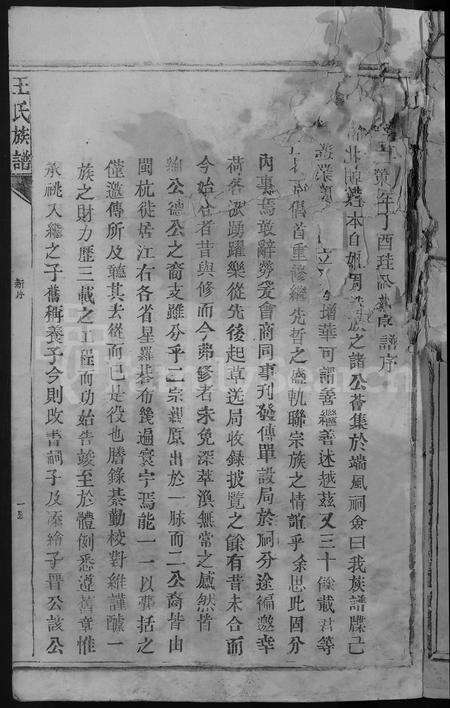 年丁酉
族之諸公薈集於端風祠僉曰我族譜牒已
增華可謂善繼善述越茲又三十餘載君等
倡首重修繼先哲之盛軌聯宗族之情誼乎余思此固分
內事焉敢辭勞爰會商同事刊發傳單設局於祠分途徧邀幸
荷各派踴躍樂從先後起草送局收錄披覽之餘有昔未合而
今始合者昔與修而今弗修者未免深萃渙無常之感然皆
公德公之裔支雖分乎二宗其原出於一脉而二公裔皆由
閩杭徙居江右各省星羅棊布幾遍寰宇焉能一一以彙括之
僅邀傳所及聽其去從而已是役也謄錄綦勤校對維謹釀一
族之財力歷三載之工程而功始告竣至於體例悉遵舊章惟
承祧入繼之子舊稱養子今則改書嗣子及添繪子晉公諒公
王氏族譜
新序